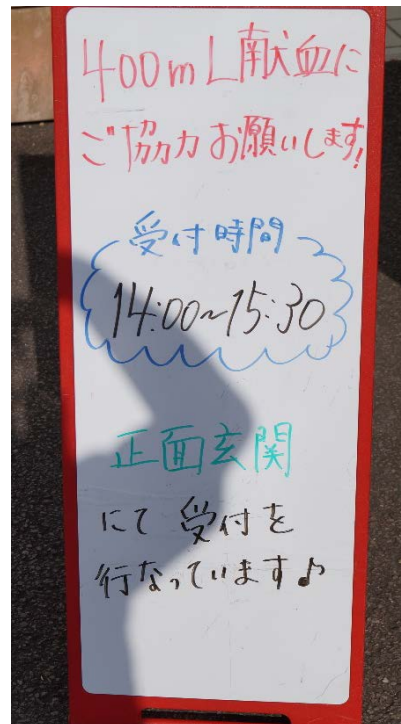 400mL献血に
ご協力お願いします!
受付時間
14:00~15:30
正面玄関
にて 受付を
行なっています♪